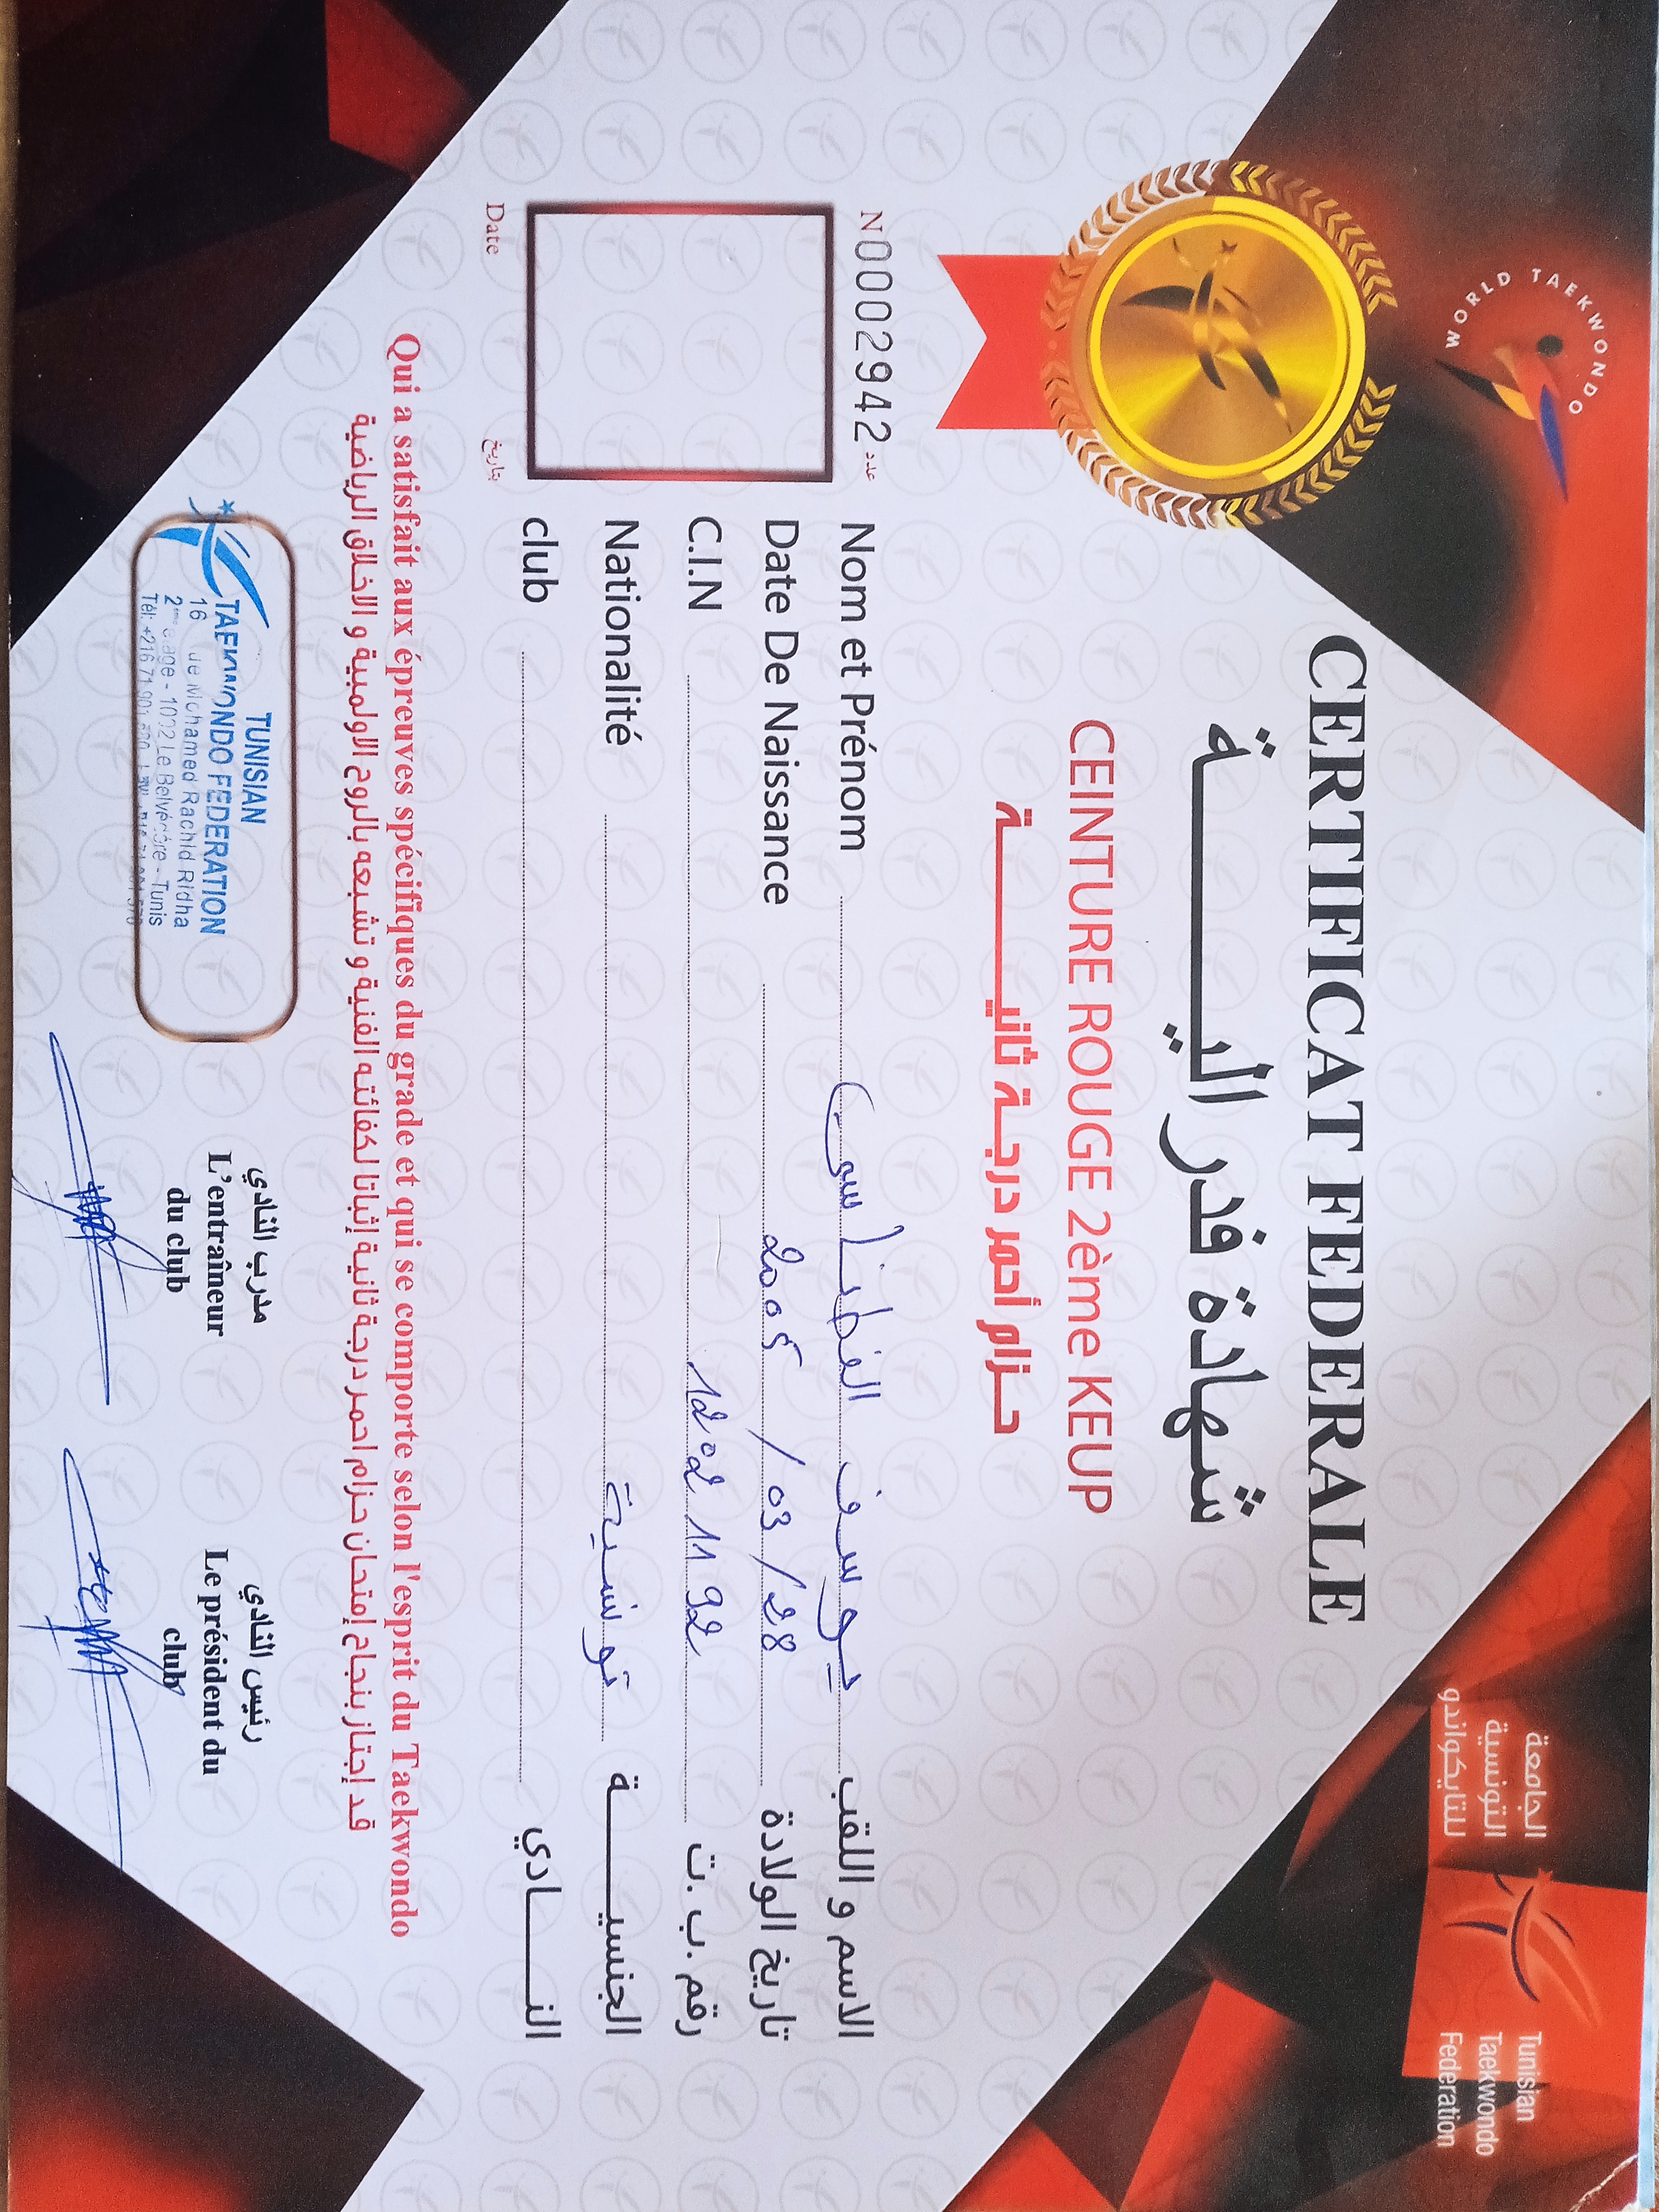 WORLD TAEKWONDO
الجامعة
التونسية
للتايكواندو
Tunisian
Taekwondo
Federation
CERTIFICAT FEDERALE
شهادة فدرالية
CEINTURE ROUGE 2ème KEUP
حزام أحمر درجة ثانية
N00002942 عدد
Nom et Prénom يوسف الاسم و اللقب
Date De Naissance 2005 / 03 / 28 تاريخ الولادة
C.I.N 12021192 رقم .ب .ت
Nationalité تونسية الجنسية
club النادي
Date بتاريخ
Qui a satisfait aux épreuves spécifiques du grade et qui se comporte selon l'esprit du Taekwondo
قد إجتاز بنجاح إمتحان حزام احمر درجة ثانية إثباتا لكفائته الفنية و تشبعه بالروح الاولمبية و الاخلاق الرياضية
TUNISIAN
TAEKWONDO FEDERATION
16 Mohamed Rachid Ridha
1002 Le Belvédère - Tunis
Tél: +216 71
مدرب النادي
L'entraîneur
du club
رئيس النادي
Le président du
club